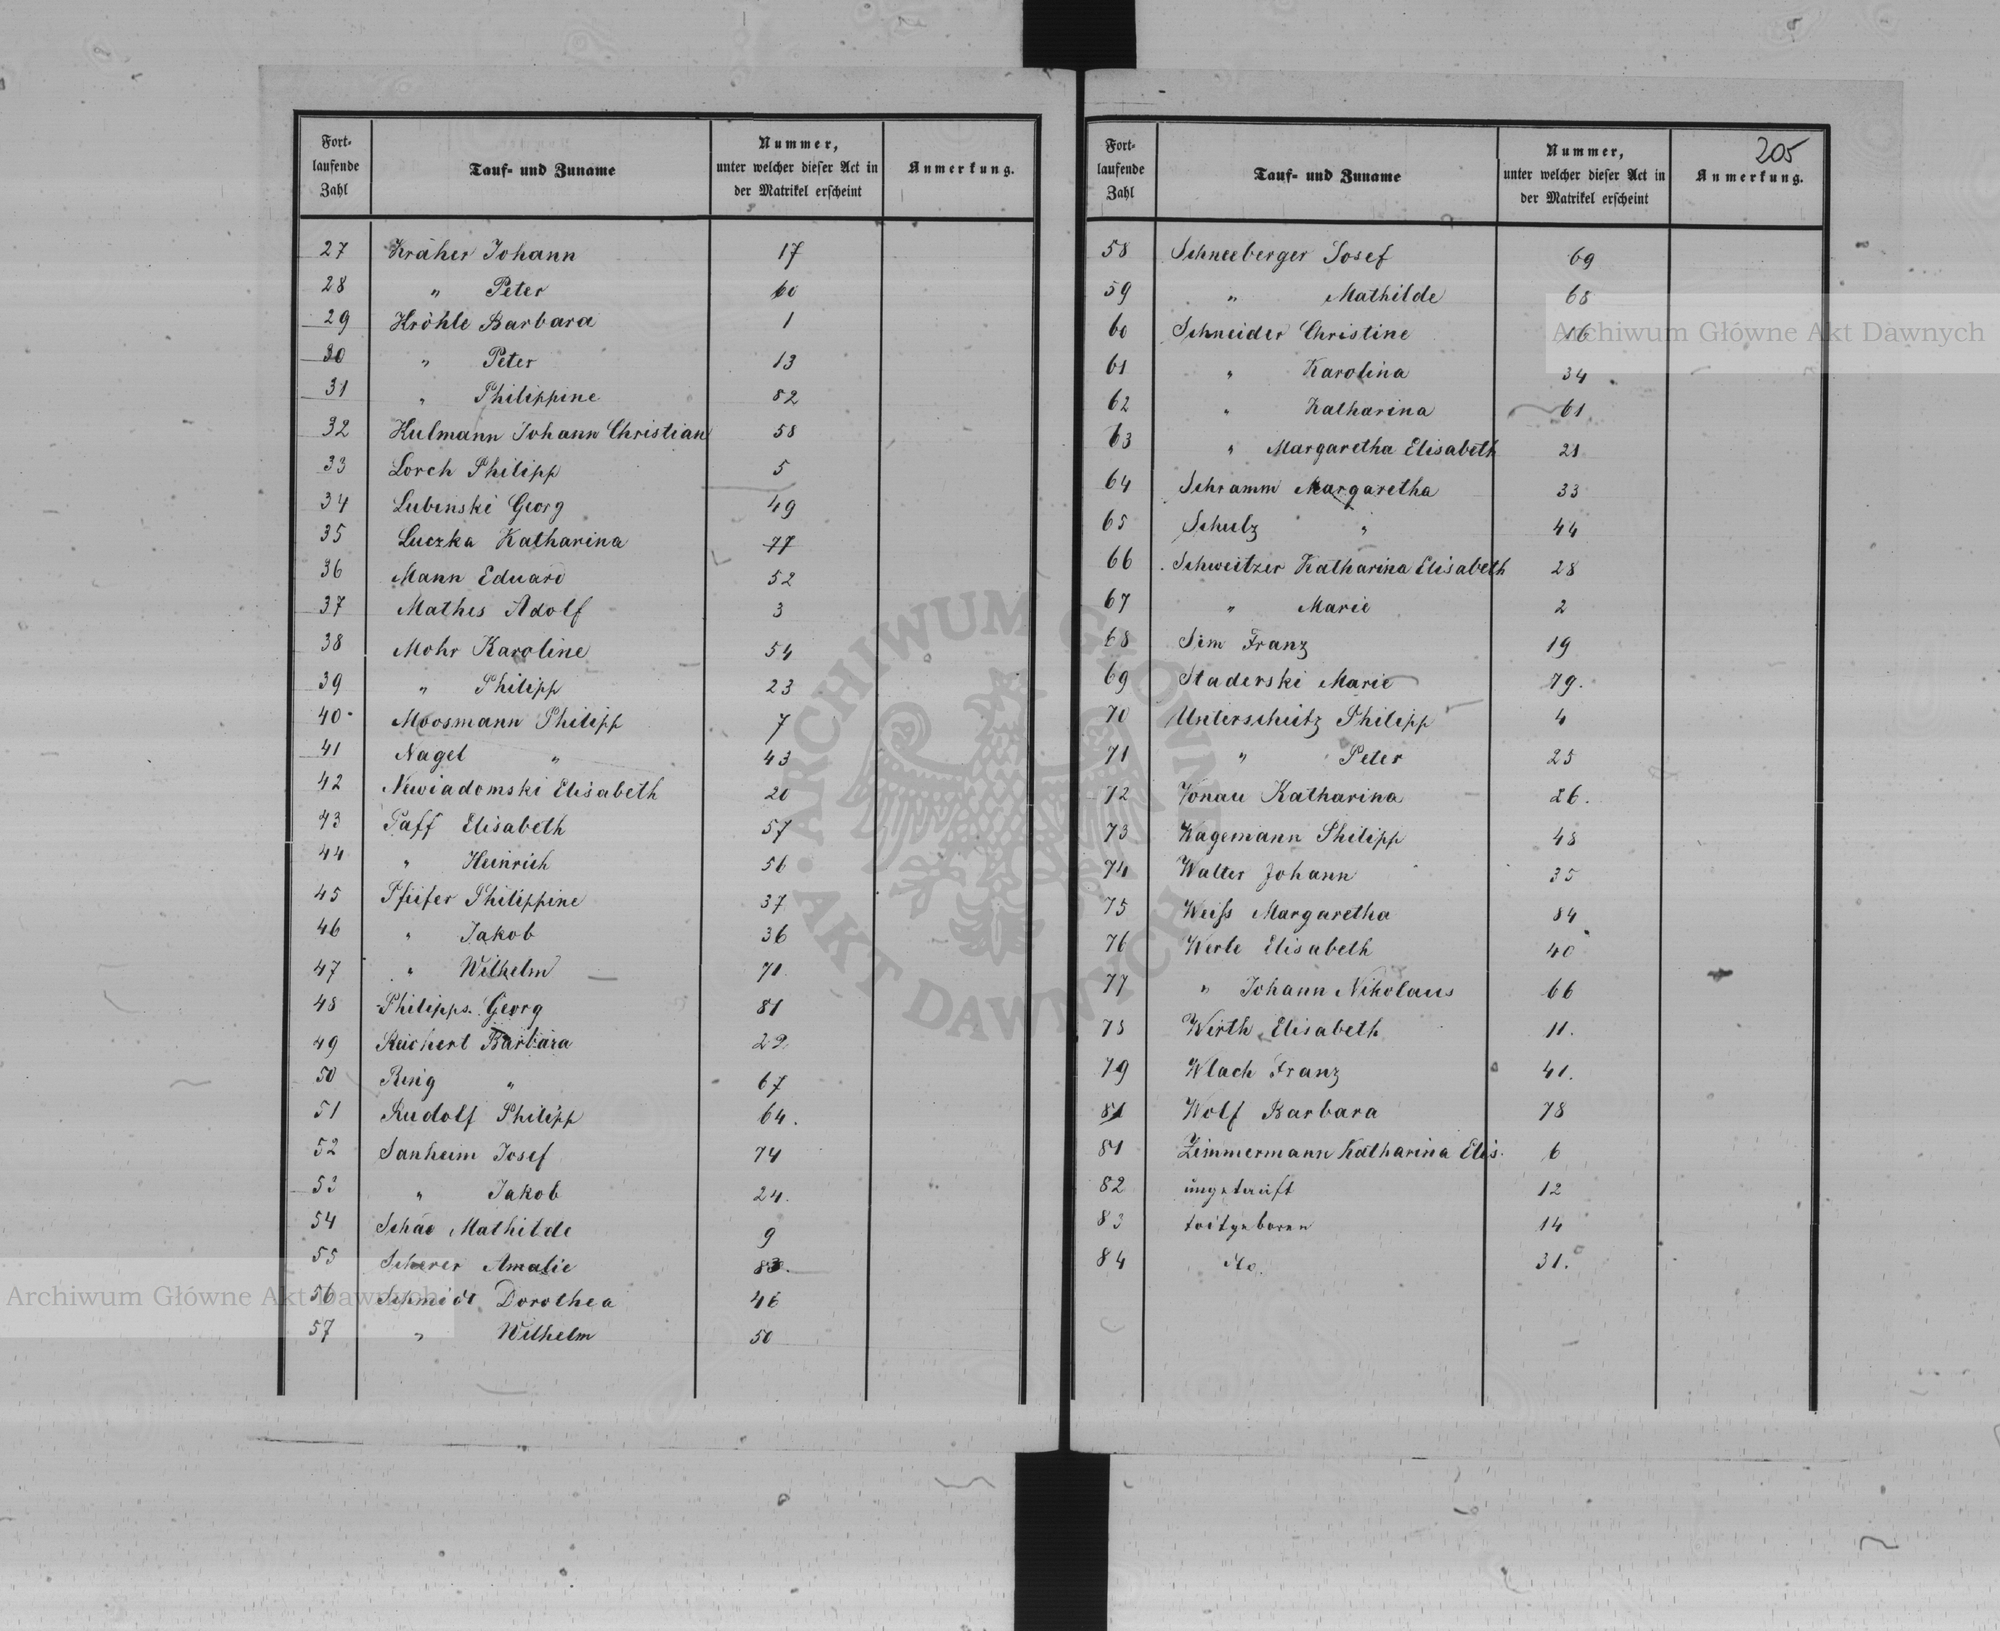 Fort-
laufende
Zahl
Tauf- und Zuname
Nummer,
unter welcher dieser Act in
der Matrikel erscheint
Anmerkung.
27 Kräher Johann 17
28 " Peter 60
29 Kröhle Barbara 1
30 " Peter 13
31 " Philippine 82
32 Kulmann Johann Christian 58
33 Lorch Philipp 5
34 Lubinski Georg 49
35 Luczka Katharina 77
36 Mann Eduard 52
37 Mathis Adolf 3
38 Mohr Karoline 54
39 " Philipp 23
40 Moosmann Philipp 7
41 Nagel " 43
42 Niwiadomski Elisabeth 20
43 Paff Elisabeth 57
44 " Heinrich 56
45 Pfeifer Philippine 37
46 " Jakob 36
47 " Wilhelm 71
48 Philipps Georg 81
49 Reichert Barbara 29
50 Ring " 67
51 Rudolf Philipp 64.
52 Sanheim Josef 74
53 " Jakob 24.
54 Mathilde 9
55 Scherer Amalie 83.
56 Schmidt Dorothea 46
57 " Wilhelm 50
205
Fort-
laufende
Zahl
Tauf- und Zuname
Nummer,
unter welcher dieser Act in
der Matrikel erscheint
Anmerkung.
58 Schneeberger Josef 69
59 " Mathilde 68
60 Schneider Christine 16
61 " Karolina 34
62 " Katharina 61
63 " Margaretha Elisabeth 21
64 Schramm Margaretha 33
65 Schulz " 44
66 Schweitzer Katharina Elisabeth 28
67 " Marie 2
68 Sim Franz 19
69 Staderski Marie 79.
70 Unterschütz Philipp 4
71 " Peter 25
72 Vonau Katharina 26.
73 Wagemann Philipp 48
74 Walter Johann 35
75 Weiss Margaretha 84
76 Werle Elisabeth 40
77 " Johann Nikolaus 66
78 Wirth Elisabeth 11.
79 Wlach Franz 41.
Wolf Barbara 78
81 Zimmermann Katharina Elis. 6
82 ungetauft 12
83 todtgeboren 14
84 dto. 31.
Archiwum Główne Akt Dawnych
Archiwum Główne Akt Dawnych
ARCHIWUM GŁÓWNE AKT DAWNYCH